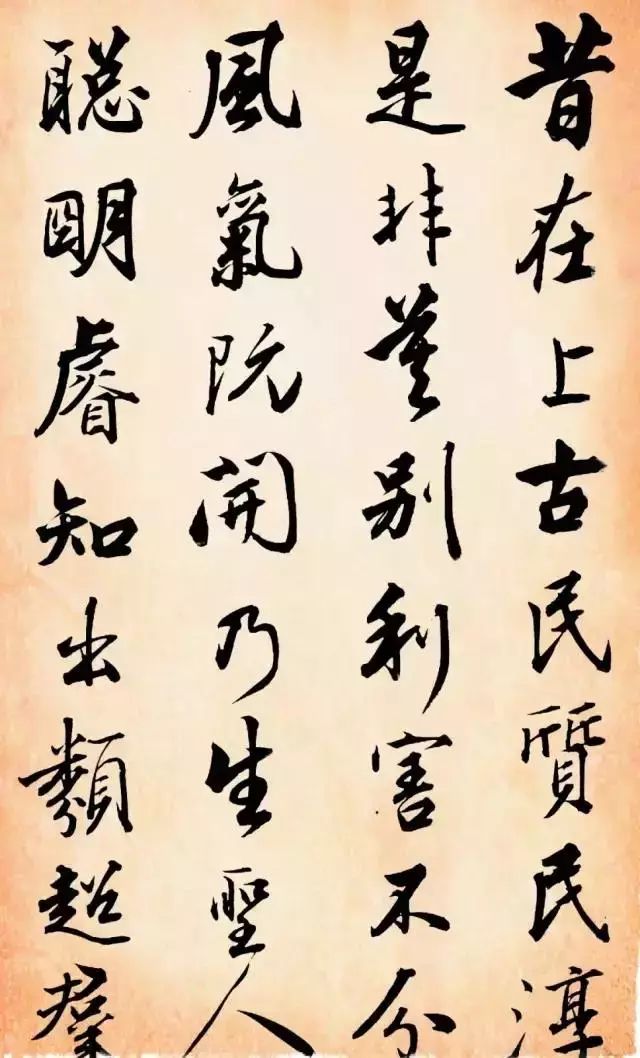 昔在上古民質民淳
是非莫别利害不分
風氣既開乃生聖人
聡明睿知出類超羣